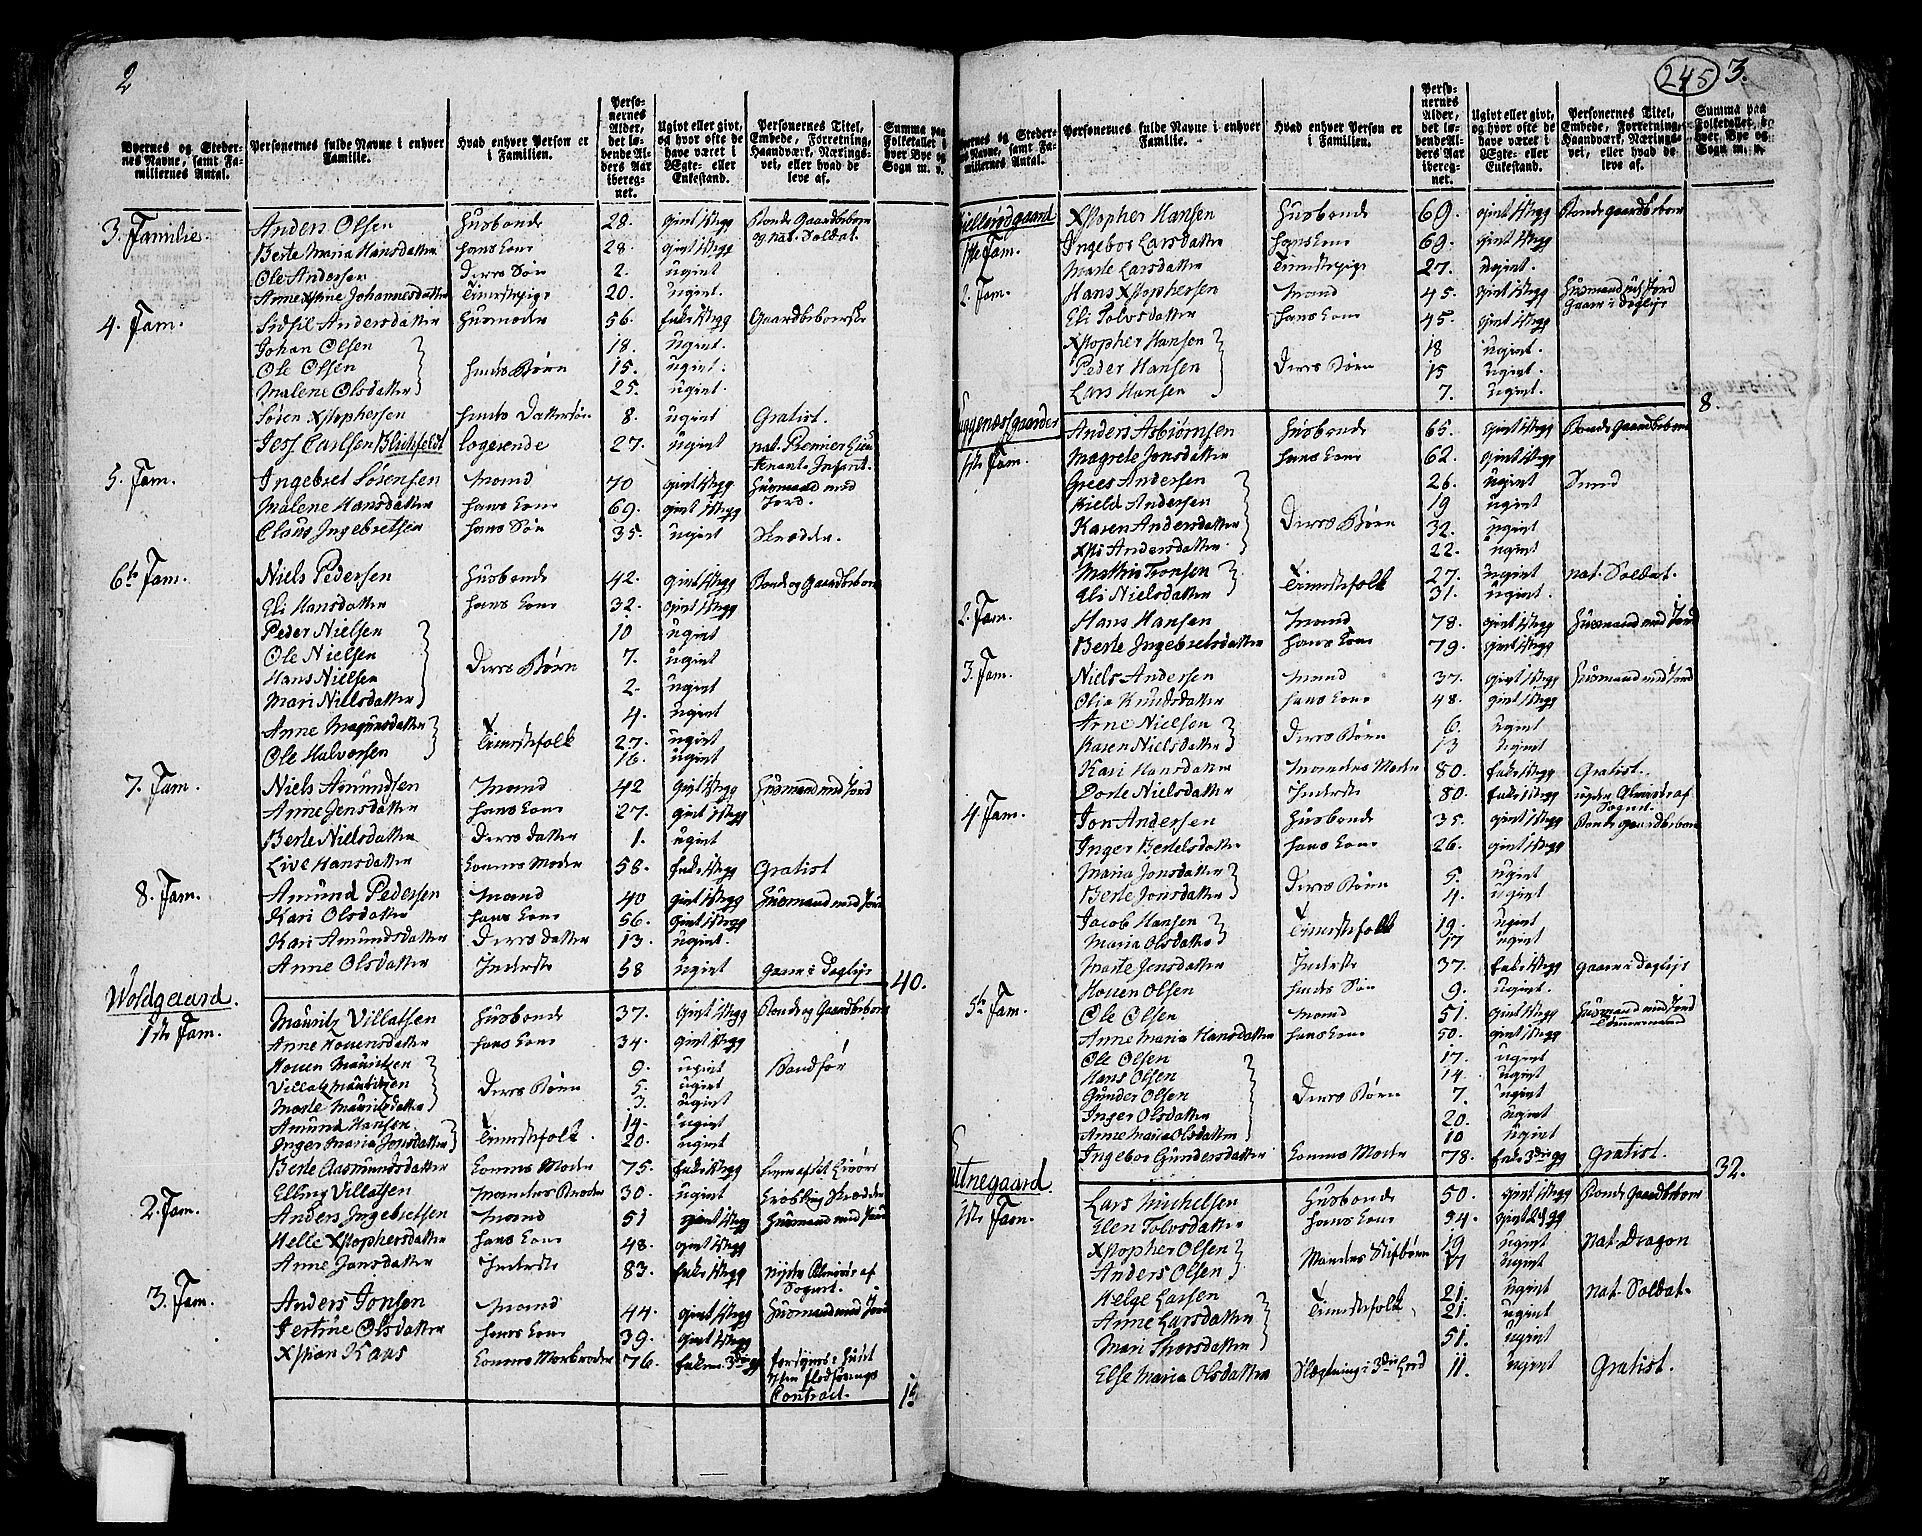 2
Byernes og Stedernes Navne, samt Familiernes Antal.
Personernes fulde Navne i enhver Familie.
Hvad enhver Person er i Familien.
Personernes Alder, det løbende Alders Aar iberegnet.
Ugivt eller givt, og hvor ofte de have været i Ægte- eller Enkestand.
Personernes Titel, Embede, Forretning, Haandværk, Næringsvei, eller hvad de leve af.
Summa paa Folketallet i hver Bye og Sogn m. v.
3. Familie. Anders Olsen Husbonde 28. givt 1ste gg Bonde Gaardbeboer og nat. Soldat.
Berte Maria Hansdatter hans Kone 28. givt 1ste gg
Ole Andersen deres Søn 2. ugivt
Anne Xstine Johannesdatter Tienestepige 20. ugivt.
4. Fam. Sidsil Andersdatter Husmoder 56. Enke 1ste gg Gaardbeboerske
Johan Olsen 18. ugivt.
Ole Olsen hendes Børn 15. ugivt.
Malene Olsdatter 25. ugivt.
Søren Xstophersen hendes Dattersøn 8. ugivt Gratist.
Jess Carlsen Blichfeldt logerende 27. ugivt nat. Premier Lieutenant Infant.
5. Fam. Ingebret Sørensen Mand 70 givt 1ste gg Huusmand med Jord.
Malene Hansdatter hans Kone 69. givt 1ste gg
Claus Ingebretsen hans Søn 35. ugivt Skrædder.
6te Fam. Niels Pedersen Husbonde 42. givt 1ste gg Bonde og Gaardbeboer
Eli Hansdatter hans Kone 32. givt 1ste gg
Peder Nielsen 10 ugivt
Ole Nielsen deres Børn 7. ugivt
Hans Nielsen 2. ugivt
Mari Nielsdatter 4. ugivt
Anne Magnusdatter Tienestefolk 27. ugivt
Ole Halvorsen 16. ugivt
7. Fam. Niels Amundsen Mand 42 givt 1ste gg Huusmand med Jord
Anne Jensdatter hans Kone 27. givt 1ste gg
Berte Nielsdatter deres datter 1. ugivt
Live Hansdatter Konens Moder 58. Enke 1ste gg Gratist
8. Fam. Amund Pedersen Mand 40 givt 1ste gg Huusmand med Jord
Kari Olsdatter hans Kone 56. givt 1ste gg
Kari Amundsdatter deres datter 13. ugivt.
Anne Olsdatter Inderste 58 ugivt gaaer i Dagleje
40.
Woldgaard.
1ste Fam. Mauritz Villatsen Husbonde 37. givt 1ste gg Bonde og Gaardbeboer
Anne Houensdatter hans Kone 34. givt 1ste gg
Houen Mauritzen 9. ugivt Vandfør
Villatz Mauritzen deres Børn 5. ugivt
Marte Mauritsdatter 3. ugivt
Amund Hansen 14. ugivt
Inger Maria Jonsdatter Tienestefolk. 20. ugivt
Berte Aasmundsdatter Konens Moder 75. Enke 1ste gg
Elling Villatsen Mandens Broder 30. ugivt Krøbling Skrædder
2. Fam. Anders Ingebretsen Mand 51 givt 1ste gg Huusmand med Jord
Helle Xstophersdatter hans Kone 48. givt 1ste gg
Anne Jonsdatter Inderste 83. Enke 1ste gg nyder Almisse af Sognet.
3. Fam. Anders Jonsen Mand 44. givt 1ste gg Huusmand med Jord
Jertine Olsdatter hans Kone 39. givt 1ste gg
Xstian Kaas Konens Morbroder 76. Enkem. 3die gg Contract.
15
245 3.
Byernes og Stedernes Navne, samt Familiernes Antal.
Personernes fulde Navne i enhver Familie.
Hvad enhver Person er i Familien.
Personernes Alder, det løbende Alders Aar iberegnet.
Ugivt eller givt, og hvor ofte de have været i Ægte- eller Enkestand.
Personernes Titel, Embede, Forretning, Haandværk, Næringsvei, eller hvad de leve af.
Summa paa Folketallet i hver Bye og Sogn m. v.
1ste Fam. Xstopher Hansen Husbonde 69. givt 1ste gg Bonde Gaardbeboer
Ingebor Larsdatter hans Kone 69. givt 1ste gg
Marte Larsdatter Tienestepige 27. ugivt.
2. Fam. Hans Xstophersen Mand 45. givt 1ste gg Huusmand uden Jord Gaaer i Dagleje
Eli Tolvsdatter hans Kone 45. givt 1ste gg
Xstopher Hansen 18 ugivt.
Peder Hansen deres Børn 15 ugivt.
Lars Hansen 7. ugivt.
8.
1ste Fam. Anders Asbiørnsen Husbonde 65. givt 1ste gg Bonde Gaardbeboer
Magrete Jonsdatter hans Kone 62. givt 1ste gg
Grees Andersen 26. ugivt
Kield Andersen 19 ugivt
Karen Andersdatter deres Børn 32. ugivt
Xsti Andersdatter 22. ugivt
Mathis Tronsen Tienestefolk 27. ugivt nat. Soldat.
Eli Nielsdatter 31. ugivt.
2. Fam. Hans Hansen Mand 78. givt 1ste gg Huusmand med Jord
Berte Ingebretsdatter hans Kone 79. givt 1ste gg
3. Fam. Niels Andersen Mand 37. givt 1ste gg Huusmand med Jord
Olia Knudsdatter hans Kone 48. givt 1ste gg
Arne Nielsen deres Børn 6. ugivt
Karen Nielsdatter 13 ugivt
Kari Hansdatter Mandens Moder 80. Enke 1ste gg Gratist.
Dorte Nielsdatter Inderste 80. Enke 1ste gg nyder Almisse af Sognet.
4. Fam. Jon Andersen Husbonde 35. givt 1ste gg Bonde Gaardbeboer
Inger Bertelsdatter hans Kone 26. givt 1ste gg
Maria Jonsdatter deres Børn 5. ugivt
Berte Jonsdatter 4. ugivt
Jacob Hansen Tienestefolk 19. ugivt
Maria Olsdatter 17 ugivt
Marte Jensdatter Inderste 37. Enke 1ste gg gaaer i Dagleje
Houen Olsen hendes Søn 9. ugivt.
5te Fam. Ole Olsen Mand 51. givt 1ste gg Huusmand med Jord Tømmermand
Anne Maria Hansdatter hans Kone 50. givt 1ste gg
Ole Olsen 17. ugivt
Hans Olsen 14. ugivt
Gunder Olsen deres Børn 7. ugivt
Inger Olsdatter 20. ugivt
Anne Maria Olsdatter 10 ugivt
Ingebor Gundersdatter Konens Moder 78. Enke 3die gg Gratist.
32.
1ste Fam. Lars Michelsen Husbonde 50. givt 1ste gg Bonde Gaardbeboer
Elen Tolvsdatter hans Kone 54. givt 2den gg
Xstopher Olsen Mandens Stifbørn 19 ugivt nat. Dragon
Anders Olsen ugivt
Helge Larsen 21. ugivt nat. Soldat.
Anne Larsdatter Tienestefolk 21. ugivt
Mari Thorsdatter 51. ugivt
Else Maria Olsdatter Slægtning i 3die Leed 11. ugivt Gratist.